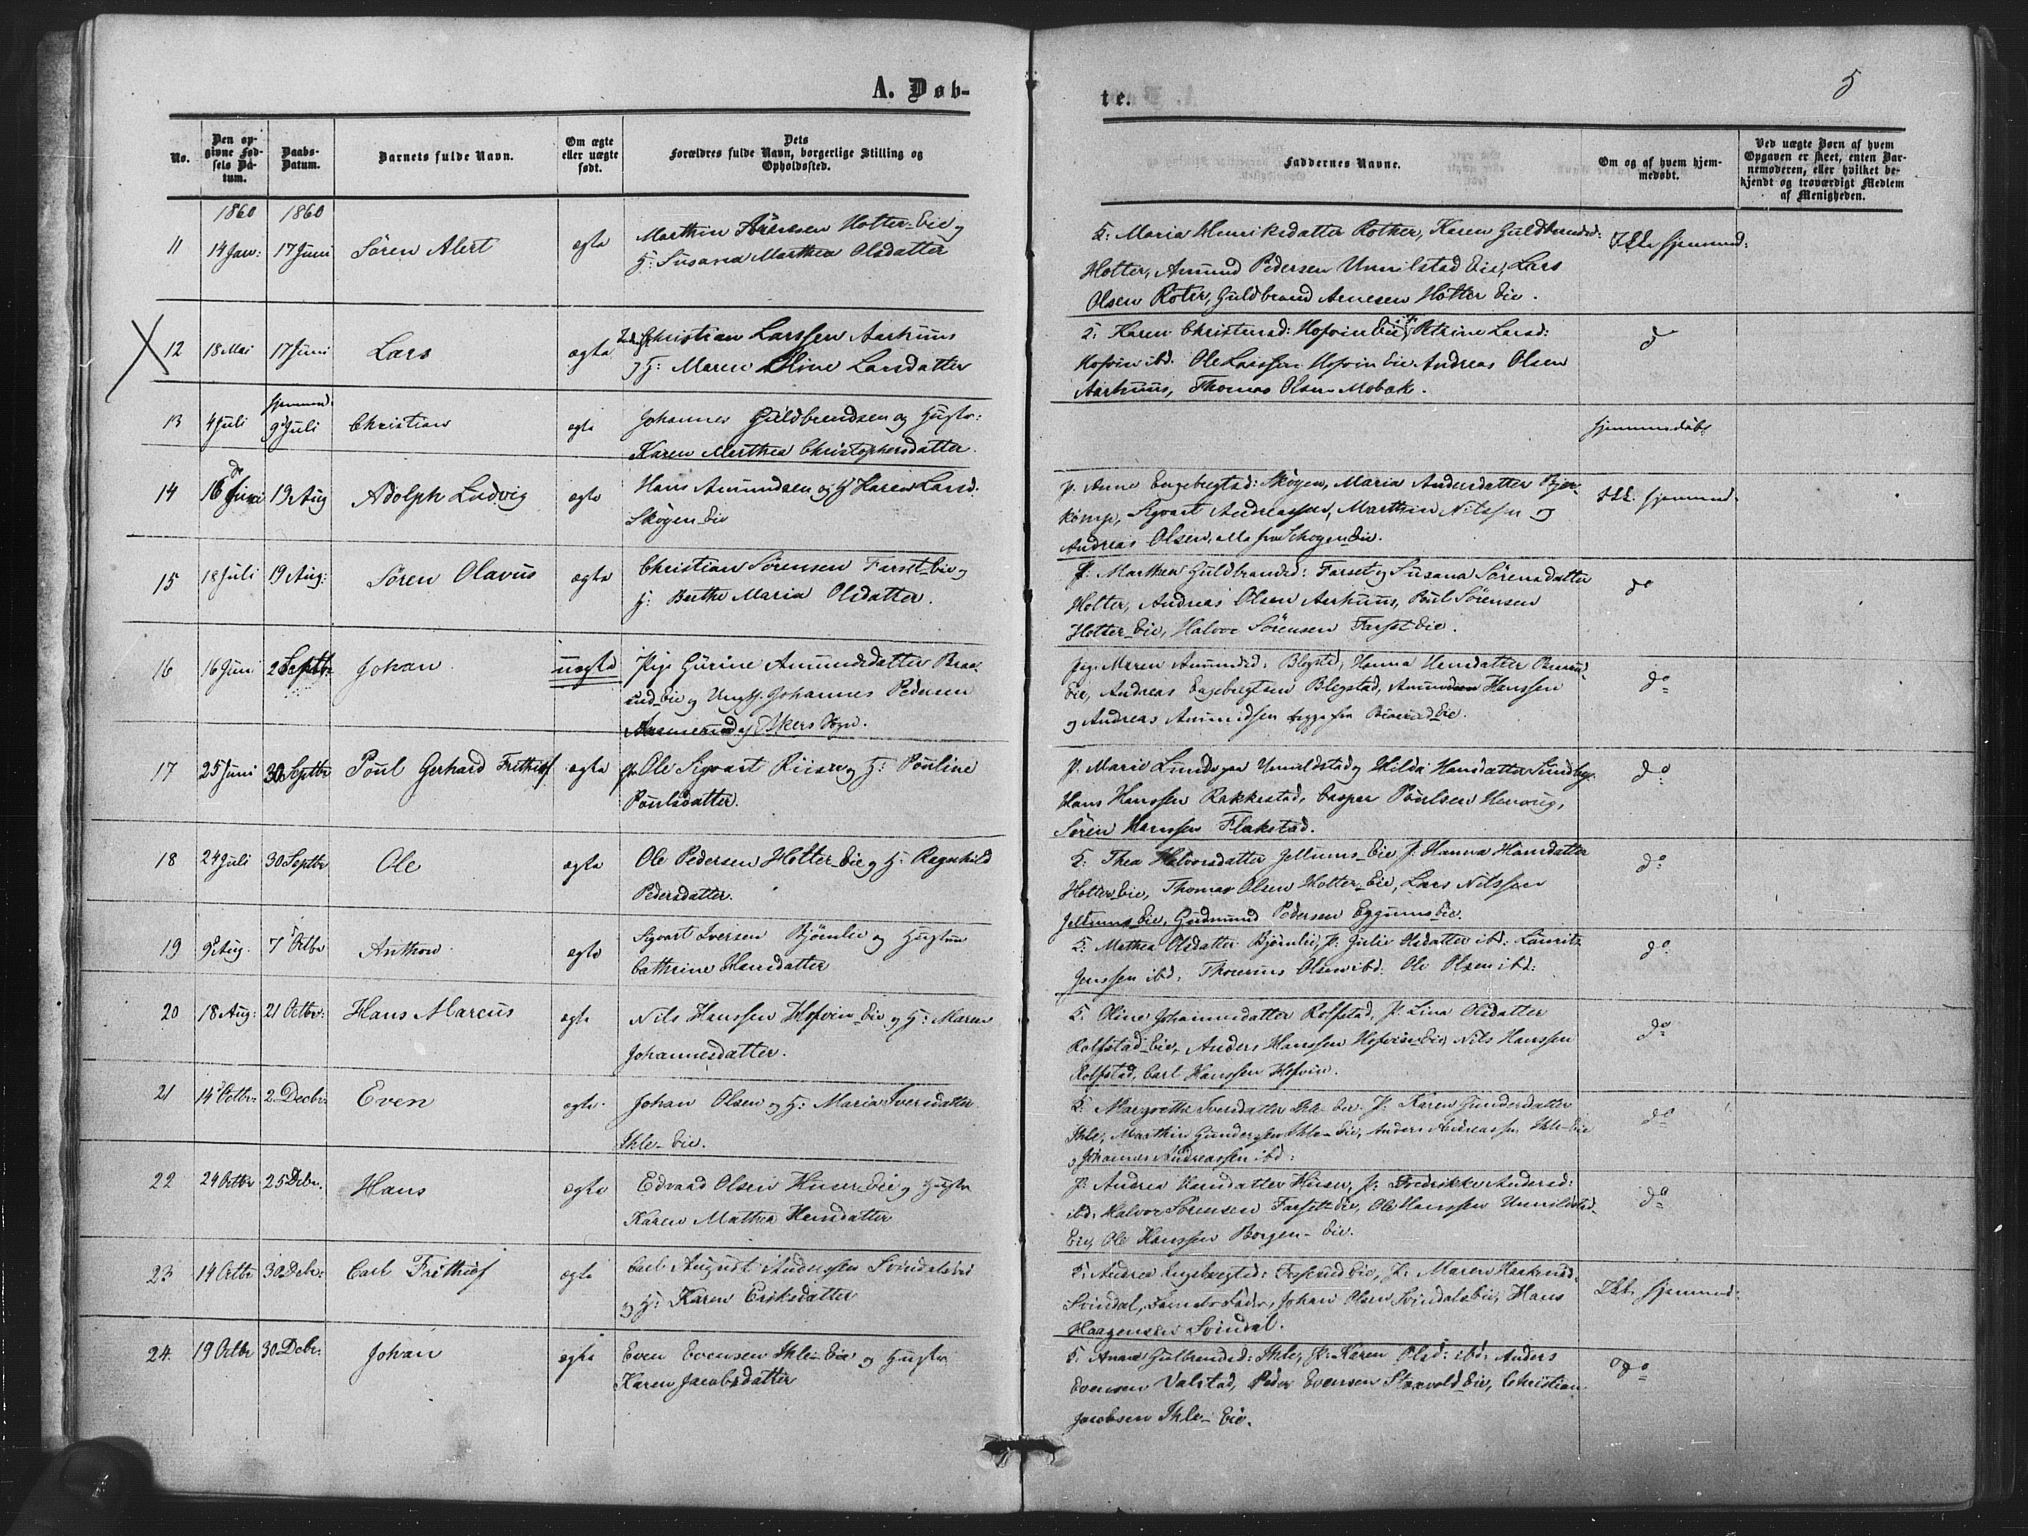 A. Døb-
te.
5
No.
Den op-
givne Fød-
sels Da-
tum.
Daabs-
Datum.
Barnets fulde Navn.
Om ægte
eller uægte
født.
Dets
Forældres fulde Navn, borgerlige Stilling og
Opholdssted.
Faddernes Navne.
Om og af hvem hjem-
medøbt.
Ved uægte Børn af hvem
Opgaven er skeet, enten Bar-
nemoderen, eller hvilket be-
kjendt og troværdigt Medlem
af Menigheden.
1860 1860
11 14 Jan: 17 Juni Søren Alert ægte Marthin Hotter-Eie og
H: Susana Marthea Olsdatter
K: Maria Henriksdatter Rother, Karen Guldbrandsd:
Hotter, Amund Pedersen Unnilstad Eie, Lars
Olsen Roter, Guldbrand Arnesen Hotter Eie.
Ikke hjemmed:
12 18 Mai 17 Juni Lars ægte Christian Larssen Aarhuus
og H: Maren Oline Larsdatter
K: Karen Christensd: Hofvin Eie, Petrine Larsd:
Hofvin ibd. Ole Larssen Hofvin Eie Andreas Olsen
Aarhuus, Thomas Olsen Mobak.
d
13 4 Juli hjemmed: 9 Juli Christian ægte Johannes Guldbrandsen og Hustr:
Karen Marthea Christophersdatter.
hjemmedøbt
14 16 Juni 19 Aug Adolph Ludvig ægte Hans Amundsen og H Karen Larsd:
Skogen Eie
P. Anne Engebregtsd: Skogen, Maria Andersdatter Bjer-
kemp, Sigvart Andreassen, Marthin Nilssen og
Andreas Olsen, alle fra Skogen Eie.
Ikk: hjemmed:
15 18 Juli 19 Aug: Søren Olavus ægte Christian Sørensen Farset-Eie og
H: Berthe Maria Olsdatter.
P: Marthea Guldbrandsd: Farset og Susana Sørensdatter
Hotter, Andreas Olsen Aarhuus, Poul Sørensen
Hotter-Eie, Halvor Sørensen Farset Eie.
do
16 16 Juni 2 Septbr Johan. uægte Pige Gurine Amundsdatter Braa-
rud Eie og Ungk. Johannes Pedersen
Aamerud af Askers Sogn.
Pig: Maren Amundsd: Blegstad, Hanna Hansdatter
Eie, Andreas Engebregtsen Blegstad, Hanssen
og Andreas Amundsen begge fra Eie.
do
17 25 Juni 30 Septbr Poul Gerhard Frithiof ægte Ole Sigvart Riise og H: Pouline
Poulsdatter.
P. Marie Lundsgaar Unnildstad og Hilda Hansdatter Sundby,
Hans Hanssen Rakkestad, Casper Poulsen
Søren Hanssen Flakstad.
do
18 24 Juli 30 Septbr Ole ægte Ole Pedersen Hotter Eie og H: Ragnhild
Pedersdatter.
K: Thea Halvorsdatter Jellums Eie P: Hanna Hansdatter
Hotter Eie, Thomas Olsen Hotter Eie, Lars Nilssen
Jellums Eie, Gudmund Pedersen Eggums Eie.
do
19 9 Aug. 7 Octbr Anthon ægte Sigvart Iversen Bjørnlie og Hustru
Cathrine Hansdatter
K: Mathea Olsdatter Bjørnlie, P: Julie Olsdatter ibd: Lauritz
Jenssen ibd, Olsen ibd. Ole Olsen ibd:
do
20 18 Aug: 21 Octbr: Hans Marcus ægte Nils Hanssen Hofvin Eie og H: Maren
Johannesdatter.
K. Oline Johannesdatter Rolfstad, P. Lina Olsdatter
Rolfstad-Eie, Anders Hanssen Hofvin Eie, Nils Hanssen
Rolfstad, Carl Hanssen Hofvin.
do
21 14 Octbr: 2 Decbr: Even ægte Johan Olsen og H: Maria Iversdatter
Ihle-Eie.
K. Margrethe Iversdatter Ihle-Eie. P: Karen Gundersdatter
Ihle, Marthin Gundersen Ihle-Eie, Anders Andreassen Ihle-Eie
og Johannes Andreassen ibd:
do
22 24 Octbr 25 Debr. Hans ægte Edvard Olsen Huser Eie og Hustru
Karen Mathea Hansdatter
P: Andrea Hansdatter Huser, P: Fredrikke Andersd:
ibd: Halvor Sørensen Farset-Eie, Ole Hanssen Unnildstad
Eie, Ole Hanssen Borgen-Eie.
do
23 14 Octbr 30 Debr: Carl Frithiof ægte Carl August Anderssen Svindalseie
og H: Karen Eriksdatter
K: Andrea Engebregtsd: Eie, P: Maren Haakensd:
Svindal, Johan Olsen Svindalseie, Hans
Haagensen Svindal.
Ikk. hjemmed:
24. 19 Octbr 30 Debr: Johan ægte Even Evensen Ihle-Eie og Hustru
Karen Jacobsdatter
K. Anne Gulbrandsd: Ihle, P: Karen Olsd: ibd: Anders
Evensen Valstad, Peder Evensen Eie, Christian
Jacobsen Ihle-Eie.
do